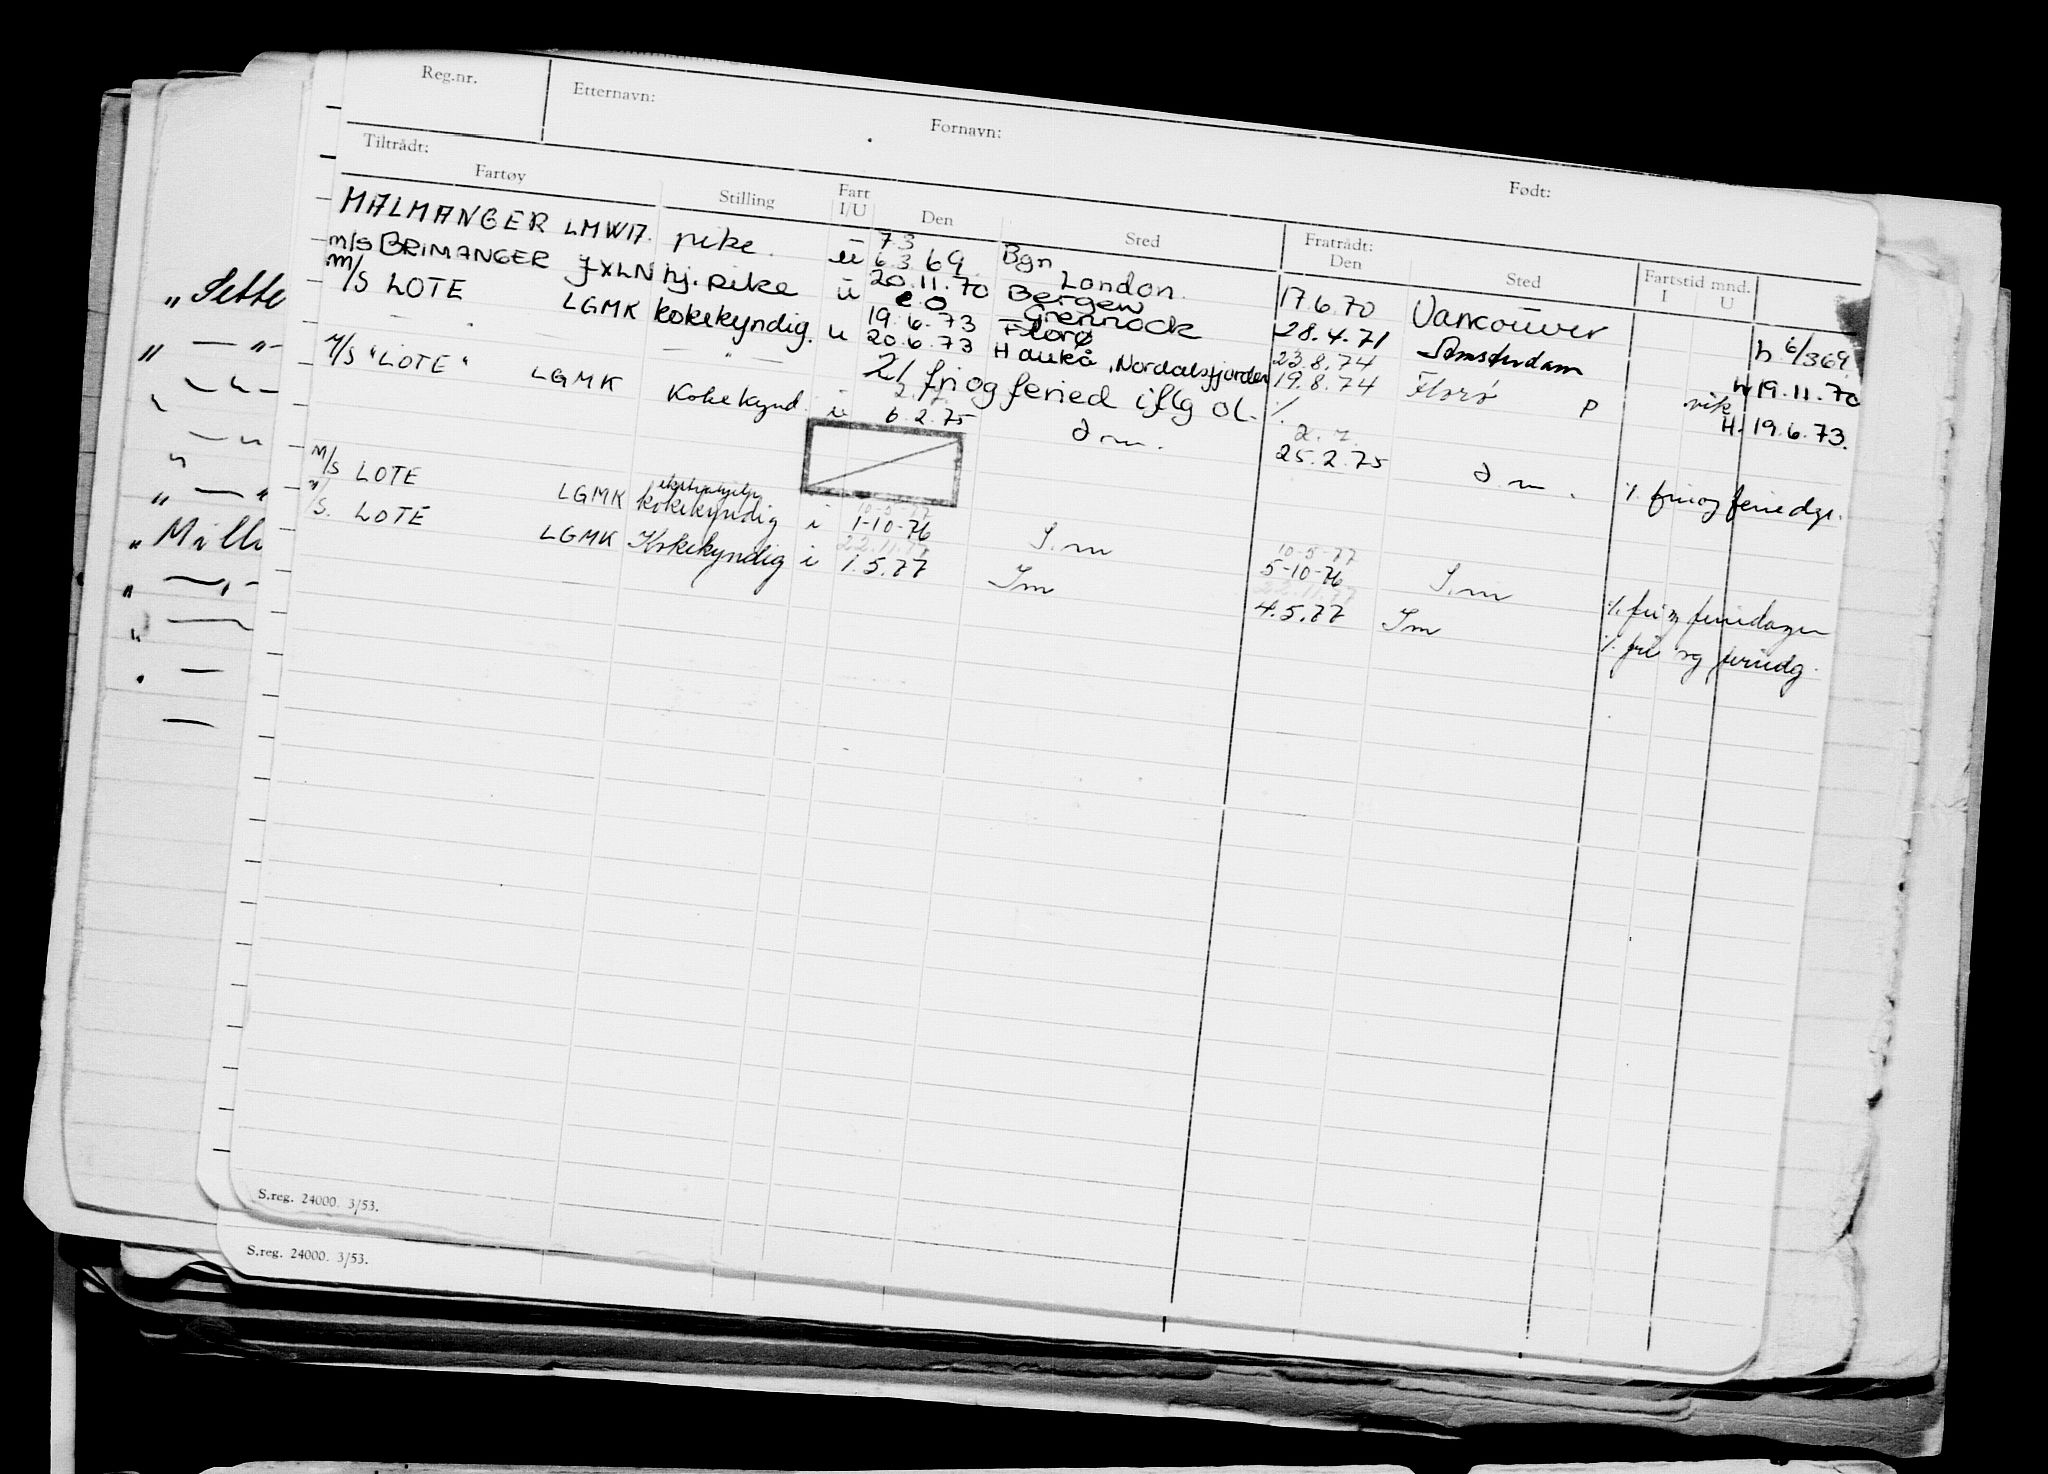 Reg.nr. Etternavn: Fornavn: Født:
Tiltrådt: Fratrådt:
Fartøy Stilling Fart I/U Den Sted Den Sted Fartstid mnd. I U
MALMANGER LMWI7. pike. u 7.3 6.3.69 Bgn London. 17.6.70 Vancouver h 6/369
m/s BRIMANGER JXLN hj. pike u 20.11.70 Bergen Grennock 28.4.71 Amsterdam h 19.11.70
m/s LOTE LGMK kokekyndig. u 19.6.73 20.6.73 Florø Haukå, Nordalsfjorden 23.8.74 19.8.74 Florø P H. 19.6.73.
— " — 2/ fri og feried iflg ol.
M/S "LOTE" LGMK Kokekynd. i 6.2.75 25.2.75 /. fri og feriedgr.
M/S LOTE LGMK kokekyndig i 10-5-77 1-10-76 I.m 10-5-77 5-10-76 I.m /. fri og feriedager
M/S. LOTE LGMK Kokekyndig i 22.11.77 1.5.77 Im 22.11.77 4.5.77 Im /. fri og feriedg.
„ Sette
„ — „ —
„ — „
„ Mill
S.reg. 24000. 3/53.
S.reg. 24000. 3/53.